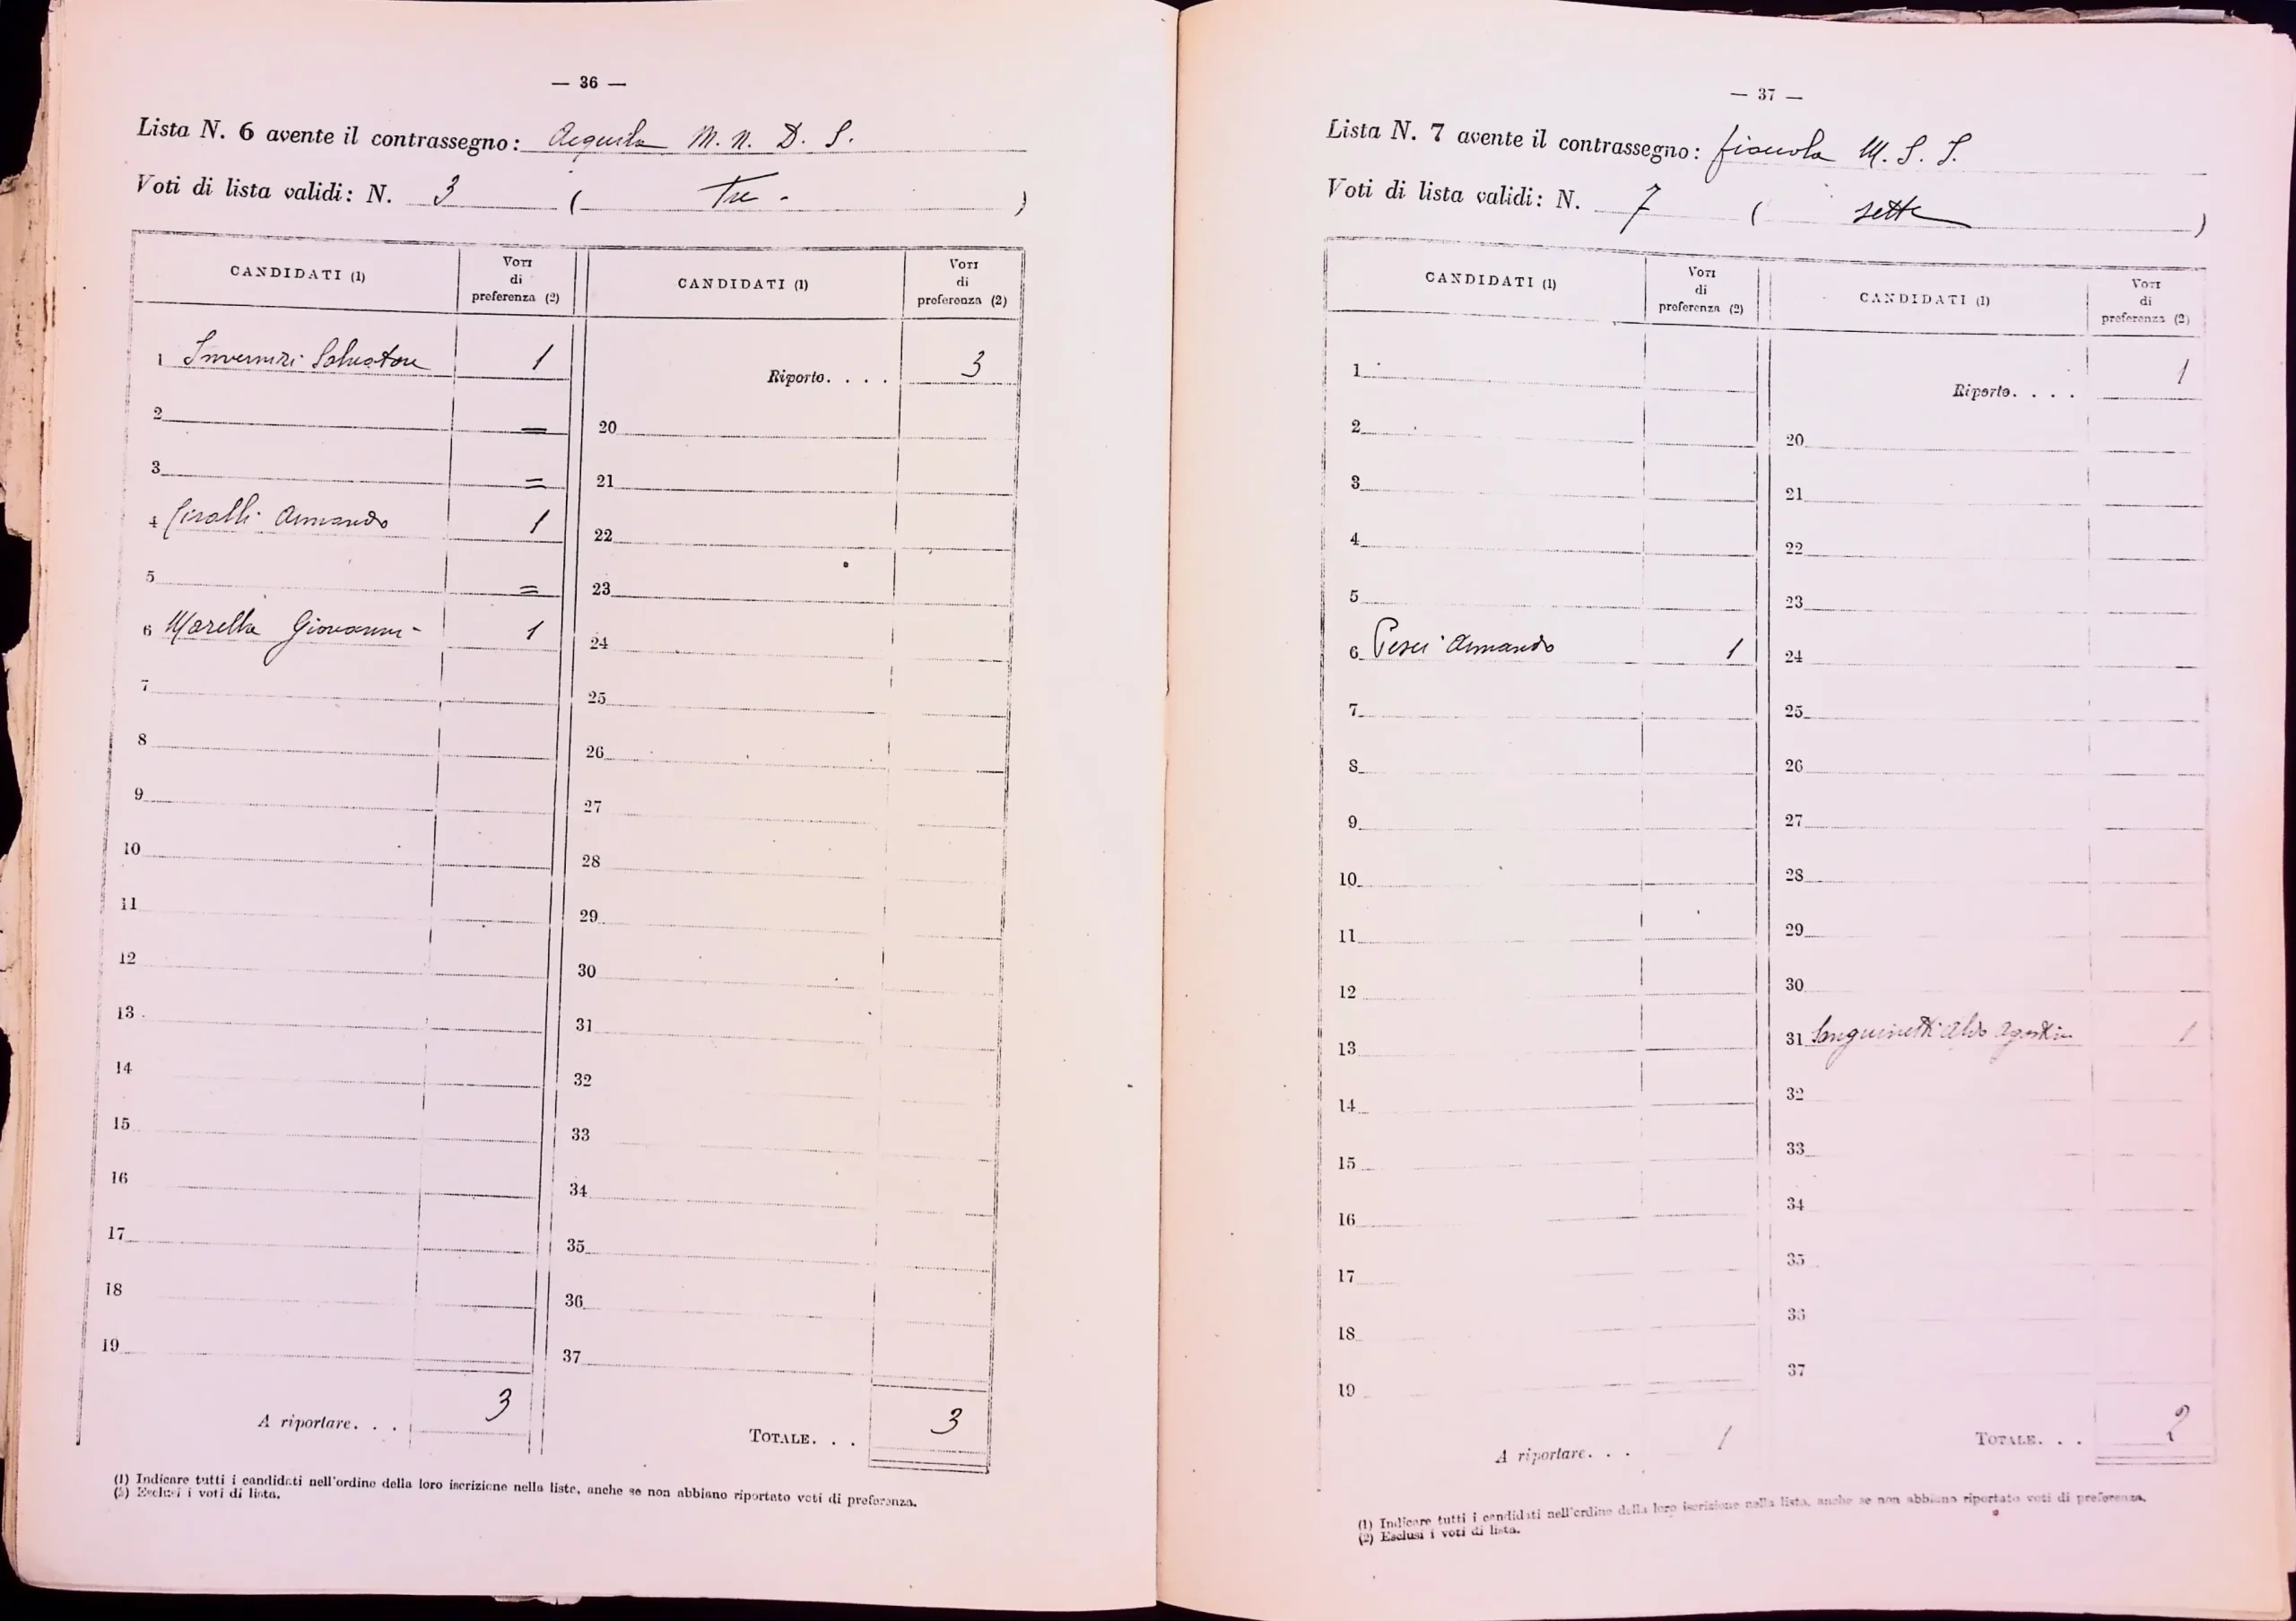 — 36 —
Lista N. 6 avente il contrassegno: Aquila M. N. D. S.
Voti di lista validi: N. 3 ( Tre - )
CANDIDATI (1) Voti di preferenza (2) CANDIDATI (1) Voti di preferenza (2)
1 Invernizi Salvatore 1 Riporto. . . . 3
2 = 20
3 = 21
4 Ciralli Armando 1 22
5 = 23
6 Morella Giovanni - 1 24
7 25
8 26
9 27
10 28
11 29
12 30
13 31
14 32
15 33
16 34
17 35
18 36
19 37
A riportare. . . 3 TOTALE. . . 3
(1) Indicare tutti i candidati nell'ordine della loro iscrizione nella liste, anche se non abbiano riportato voti di preferenza.
(2) Esclusi i voti di lista.
— 37 —
Lista N. 7 avente il contrassegno: fiaccola M. S. I.
Voti di lista validi: N. 7 ( sette )
CANDIDATI (1) Voti di preferenza (2) CANDIDATI (1) Voti di preferenza (2)
1 Riporto. . . . 1
2 20
3 21
4 22
5 23
6 Pesci Armando 1 24
7 25
8 26
9 27
10 28
11 29
12 30
13 31 Sanguinetti Aldo Agostino 1
14 32
15 33
16 34
17 35
18 36
19 37
A riportare. . . 1 TOTALE. . . 2
(1) Indicare tutti i candidati nell'ordine della loro iscrizione nella lista, anche se non abbiano riportato voti di preferenza.
(2) Esclusi i voti di lista.